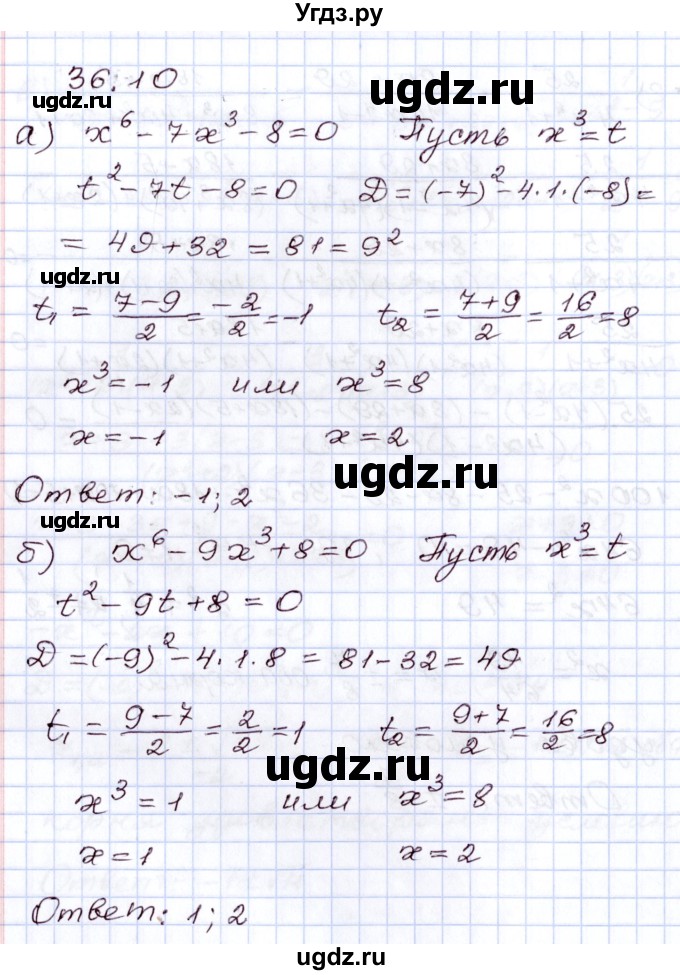 Угдз.ру
36.10
ugdz.ru ugdz.ru
а) x⁶ - 7x³ - 8 = 0 Пусть x³ = t
t² - 7t - 8 = 0 D = (-7)² - 4·1·(-8) =
= 49 + 32 = 81 = 9²
ugdz.ru ugdz.ru
t₁ = (7-9)/2 = -2/2 = -1 t₂ = (7+9)/2 = 16/2 = 8
x³ = -1 или x³ = 8
x = -1 x = 2
ugdz.ru
Ответ: -1; 2
ugdz.ru ugdz.ru
б) x⁶ - 9x³ + 8 = 0 Пусть x³ = t
t² - 9t + 8 = 0
D = (-9)² - 4·1·8 = 81 - 32 = 49
ugdz.ru ugdz.ru
t₁ = (9-7)/2 = 2/2 = 1 t₂ = (9+7)/2 = 16/2 = 8
ugdz.ru
x³ = 1 или x³ = 8
x = 1 x = 2
Ответ: 1; 2
ugdz.ru